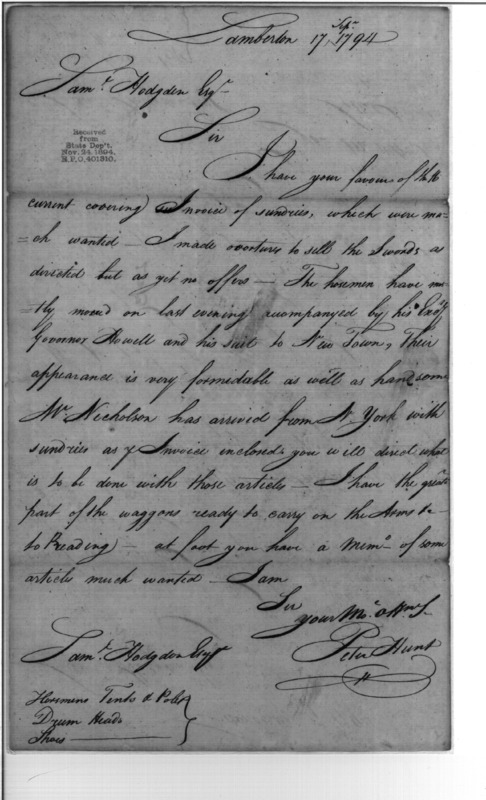 Lamberton 17, Sepr 1794
Saml. Hodgden Esqr
Received
from
State Dep't.
Nov. 24, 1894.
R.P.O. 401510.
Sir
I have your favour of the
current covering Invoice of sundries, which were mu=
=ch wanted — I made overtures to sell the Swords as
directed but as yet no offers — The horsemen have mo
tly moved on last evening accompanyed by his Exey
Govornor Howell and his suit to New Town, Their
appearance is very formidable as well as handsome
Mr. Nicholson has arrived from N. York with
sundries as pr Invoice inclosed you will direct what
is to be done with those articles — I have the greatr
part of the waggons ready to carry on the Arms &c
to Reading — at foot you have a Memo. of some
articles much wanted — I am
Sir
your Mo. O Hm. S.
Peter Hunt
Saml. Hodgden Esqr
Horsmens Tents & Poles
Drum Heads
Shoes